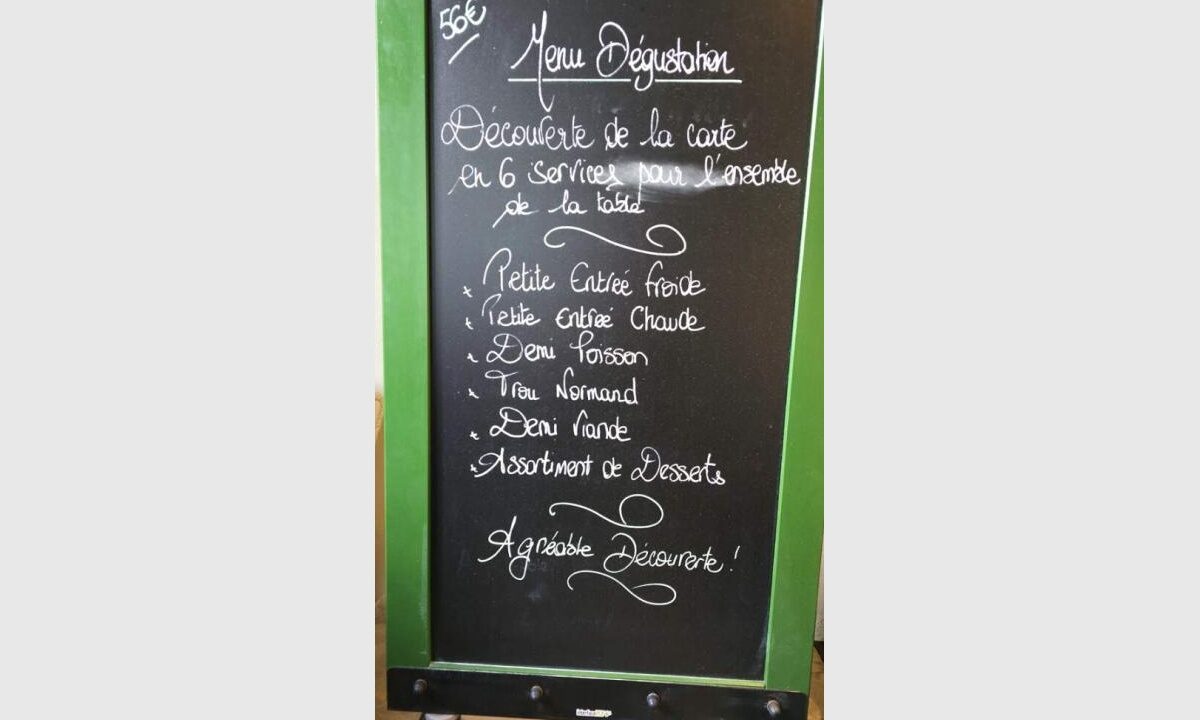 56€
Menu Dégustation
Découverte de la carte
en 6 services pour l'ensemble
de la table
* Petite Entreé froide
* Petite Entreé Chaude
* Demi Poisson
* Trou Normand
* Demi Viande
* Assortiment de Desserts
Agréable Découverte !